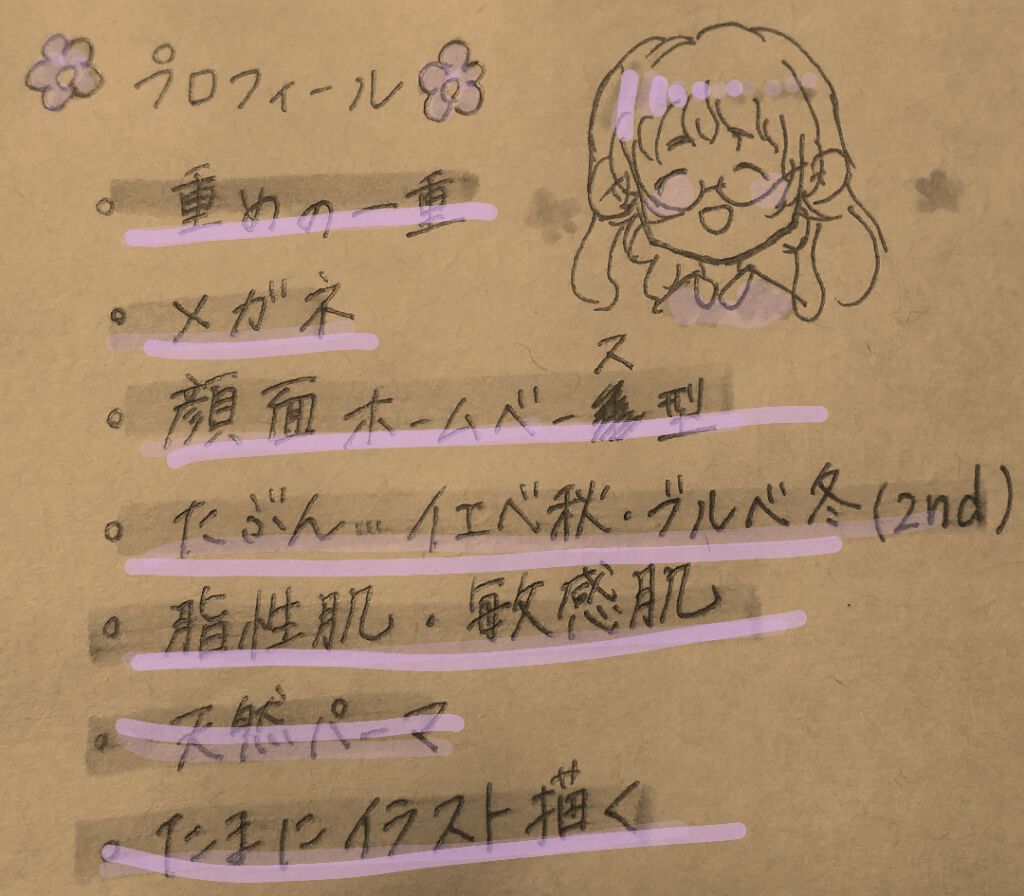 プロフィール
。重めの一重
。メガネ
。顔面ホームベース型
。たぶん…イエベ秋・ブルベ冬(2nd)
。脂性肌・敏感肌
。天然パーマ
。たまにイラスト描く